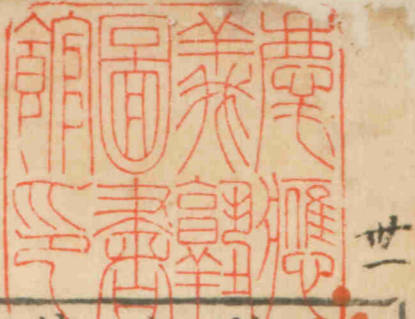 慶應
義塾
圖書
館印
卅一